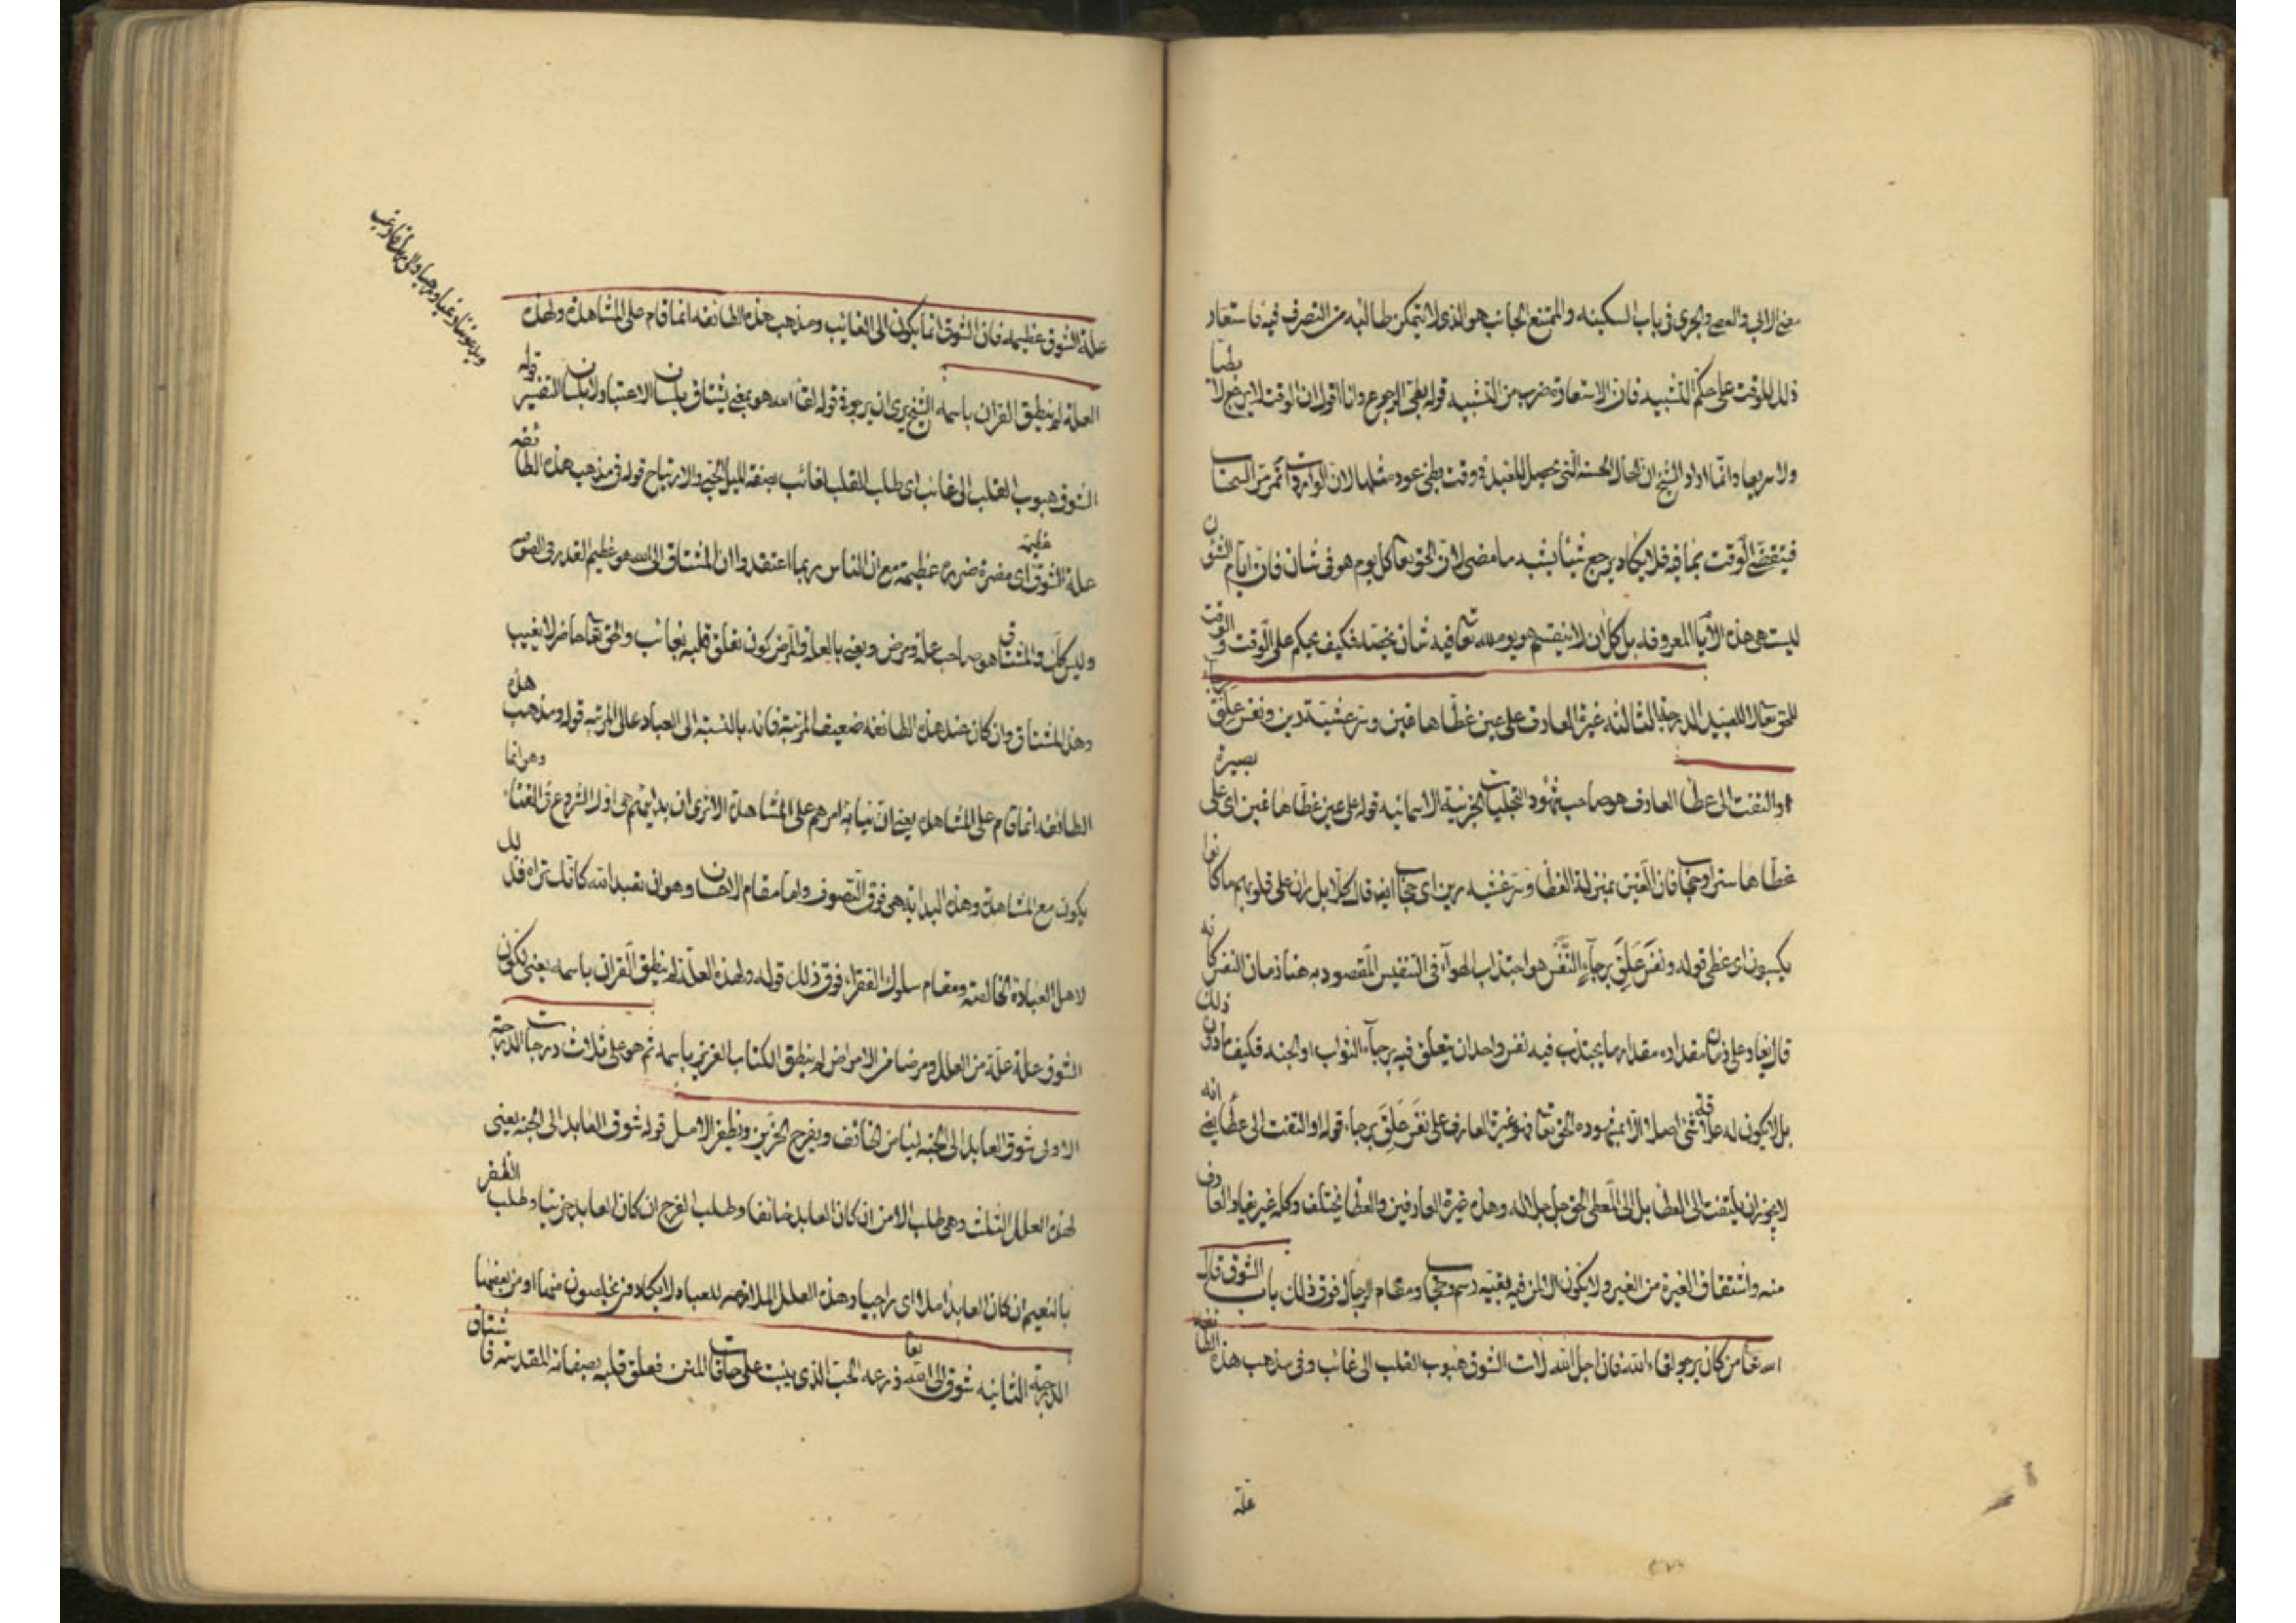 معنى الابي والعصي والجرى في باب السكينه والممتنع الجانب هو الذى لا يتمكن طالبه من التصرف فيه فاستعار
ذلك للوقت على حكم التشبيه فان الاستعارة ضرب من التشبيه قوله بطى الرجوع وانا اقول ان الوقت لا يرجع لا بطيا
ولا سريعا وانما اراد الشيخ ان الحال الحسنة التى تحصل للعبد فى وقت بطى عود مثلها لان الواردات تمر مر السحاب
فينقضى الوقت بما فيه فلا يكاد يرجع شيأ يشبه ما مضى لان الحق تعا كل يوم هو فى شان فان ايام الشؤن
ليست هى هذه الأيام المعروفه بل كل ان لا ينقسم هو يوم لله تعا فيه شان يخصه فكيف يحكم على الوقت والوقت
للحق تعا لا للعبد الدرجة الثالثه غيرة العارف على عين غطاها غين وسر غشيه رين ونفس علق برجاء
او التفت الى عطا العارف هو صاحب شهود التجليات الجزئية الاسمائيه قوله على عين غطاها غين اى على بصيرة
غطاها ستر او حجاب فان الغين بمنزلة الغطا وسر غشيه رين اى حجاب ايضا قال كلا بل ران على قلوبهم ما كانوا
يكسبون اى غطى قوله ونفس علق برجاء النفس هو اجتذاب الهواء فى التنفيس المقصود به هنا زمان النفس كانه
قال يغار على زمان مقداره مقدار ما يجتذب فيه نفس واحد ان يتعلق فيه برجاء الثواب او الجنه فكيف ما دون ذلك
بل لا يكون له علاقة بشى اصلا الا بشهوده الحق تعا فهو غيرة العارف على نفس علق برجاء قوله او التفت الى عطا يعنى انه
لا يجوز ان يلتفت الى العطا بل الى المعطى الحق جل جلاله وهذه غيرة العارفين والعطا يختلف وكله غير يغار العارف
منه واشتقاق الغيرة من الغير ولا يكون الا لمن فيه بقيه رسم وحجاب ومقام الرجال فوق ذلك باب الشوق قال
الله تعا من كان يرجو لقاء الله فان اجل الله لات الشوق هبوب القلب الى غائب وفى مذهب هذه الطائفه
علة
علة الشوق عظيمه فان الشوق انما يكون الى الغايب ومذهب هذه الطائفه انما قام على المشاهده ولهذه
العلة لم ينطق القران باسمه الشيخ يرى ان يرجو فى قوله لقا الله هو بمعنى يشتاق بلسان الاعتبار لا بلسان التفسير قوله
الشوق هبوب القلب الى غائب اى طلب القلب لغائب بصفة الميل الحبى والارتياح قوله فى مذهب هذه الطائفه
علة الشوق عظيمة اى مضرة ضرره عظيمة مع ان الناس ربما اعتقدوا ان المشتاق الى الله هو عظيم القدر فى الصوم
وليس كذلك والمشتاق هو صاحب علة ومرض ويعنى بالعلة والمرض كون تعلق قلبه بغائب والحق تعا حاضر لا يغيب
وهذا المشتاق وان كان عند هذه الطائفه ضعيف المرتبة فانه بالنسبة الى العباد عالى المرتبه قوله ومذهب هذه
الطائفه انما قام على المشاهده يعنى ان بناية امرهم على المشاهدة الا ترى ان بدايتهم هى اول الشروع فى الفناء وهو انما
يكون مع المشاهدة وهذه البداية هى فوق التصوف واما مقام الاحسان وهو ان تعبد الله كانك تراه فذلك
لاهل العبادة الخالصة ومقام سلوك الفقراء فوق ذلك قوله ولهذه العلة لم ينطق القران باسمه يعنى لكون
الشوق علة علة من العلل ومرضا من الامراض لم ينطق الكتاب العزيز باسمه ثم هو على ثلاث درجات الدرجة
الاولى شوق العابد الى الجنه ليامن الخائف ويفرح الحزين ويظفر الامل قوله شوق العابد الى الجنه يعنى
لهذه العلل الثلث وهى طلب الامن ان كان العابد خائفا وطلب الفرح ان كان العابد حزينا وطلب الظفر
بالنعيم ان كان العابد املا اى راجيا وهذه العلل الملازمه للعباد لا يكادون يخلصون منها او من بعضها
الدرجة الثانيه شوق الى الله تعا زرعه الحب الذى ينبت على حافات المنن فعلق قلبه بصفاته المقدسه فاشتاق